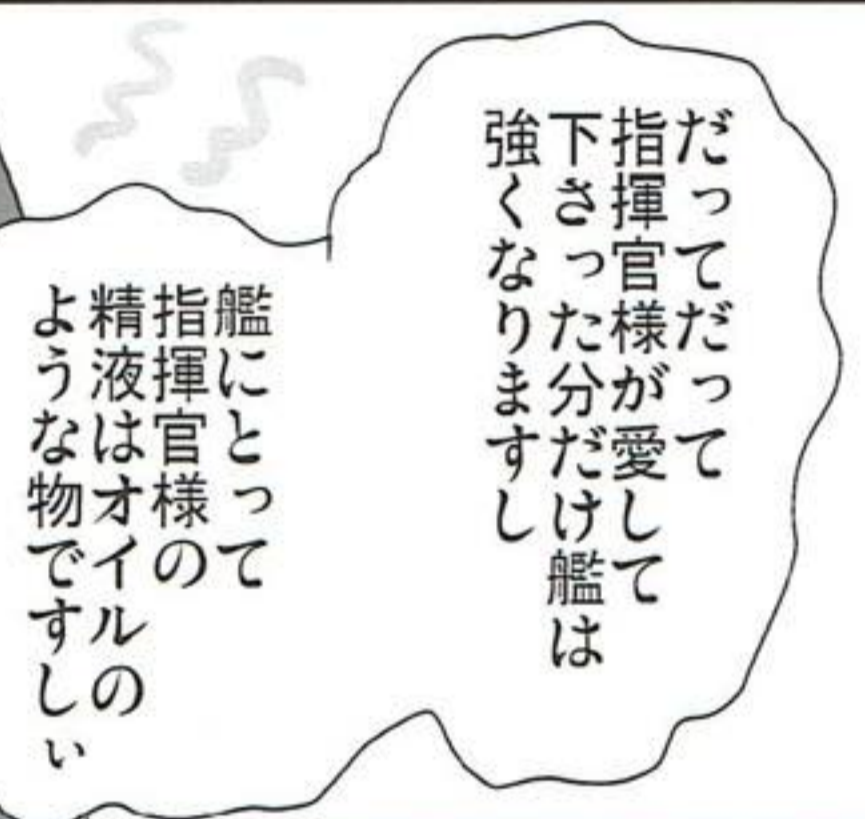 だってだって
指揮官様が愛して
下さった分だけ艦は
強くなりますし
艦にとって
指揮官様の
精液はオイルの
ような物ですしぃ